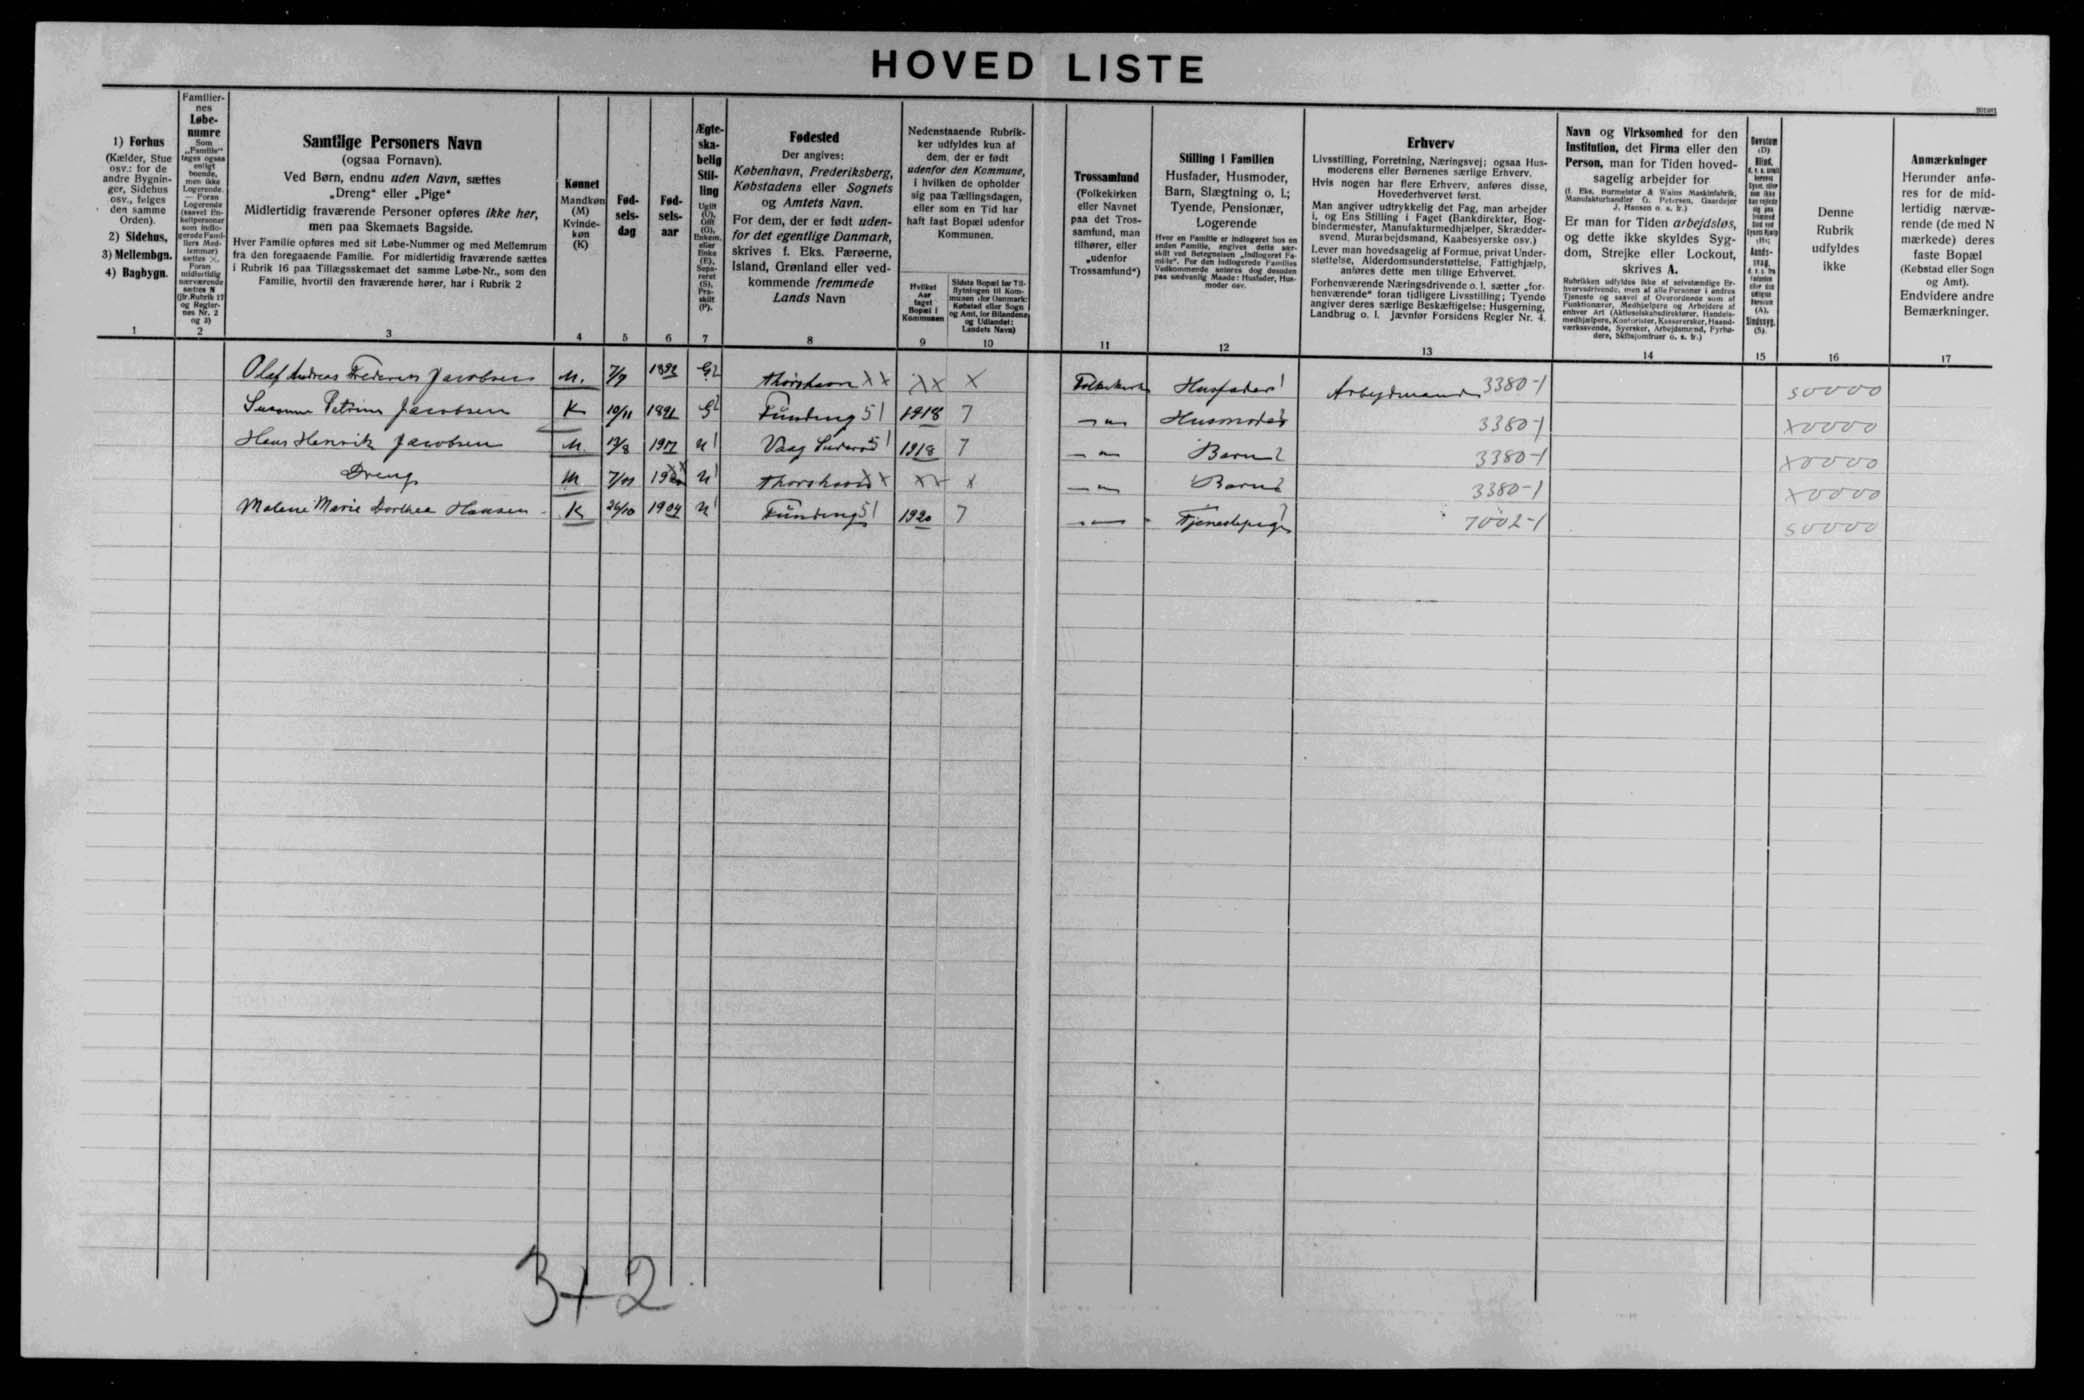 HOVED LISTE
1) Forhus
(Kælder, Stue
osv.: for de
andre Bygnin-
ger, Sidehus
osv., følges
den samme
Orden).
2) Sidehus,
3) Mellembgn.
4) Bagbygn.
1
Familier-
nes
Løbe-
numre
2
Samtlige Personers Navn
(ogsaa Fornavn).
Ved Børn, endnu uden Navn, sættes
„Dreng“ eller „Pige“
Midlertidig fraværende Personer opføres ikke her,
men paa Skemaets Bagside.
Hver Familie opføres med sit Løbe-Nummer og med Mellemrum
fra den foregaaende Familie. For midlertidig fraværende sættes
i Rubrik 16 paa Tillægsskemaet det samme Løbe-Nr., som den
Familie, hvortil den fraværende hører, har i Rubrik 2
3
Kønnet
Mandkøn
(M)
Kvinde-
køn
(K)
4
Fød-
sels-
dag
5
Fød-
sels-
aar
6
Ægte-
ska-
belig
Stil-
ling
Ugift
(U),
Gift
(G),
Enkem.
eller
Enke
(E),
Sepa-
reret
(S),
Fra-
skilt
(F).
7
Fødested
Der angives:
København, Frederiksberg,
Købstadens eller Sognets
og Amtets Navn.
For dem, der er født uden-
for det egentlige Danmark,
skrives f. Eks. Færøerne,
Island, Grønland eller ved-
kommende fremmede
Lands Navn
8
Nedenstaaende Rubrik-
ker udfyldes kun af
dem, der er født
udenfor den Kommune,
i hvilken de opholder
sig paa Tællingsdagen,
eller som en Tid har
haft fast Bopæl udenfor
Kommunen.
Hvilket
Aar
taget
Bopæl i
Kommunen
9
Sidste Bopæl før Til-
flytningen til Kom-
munen (for Danmark:
Købstad eller Sogn
og Amt, for Bilandene
og Udlandet:
Landets Navn)
10
Trossamfund
(Folkekirken
eller Navnet
paa det Tros-
samfund, man
tilhører, eller
„udenfor
Trossamfund“)
11
Stilling i Familien
Husfader, Husmoder,
Barn, Slægtning o. l.;
Tyende, Pensionær,
Logerende
Hvor en Familie er indlogeret hos en
anden Familie, angives dette sær-
skilt ved Betegnelsen „Indlogeret Fa-
milie“. For den indlogerede Families
Vedkommende anføres dog desuden
paa sædvanlig Maade: Husfader, Hus-
moder osv.
12
Erhverv
Livsstilling, Forretning, Næringsvej; ogsaa Hus-
moderens eller Børnenes særlige Erhverv.
Hvis nogen har flere Erhverv, anføres disse,
Hovederhvervet først.
Man angiver udtrykkelig det Fag, man arbejder
i, og Ens Stilling i Faget (Bankdirektør, Bog-
bindermester, Manufakturmedhjælper, Skrædder-
svend, Murarbejdsmand, Kaabesyerske osv.)
Lever man hovedsagelig af Formue, privat Under-
støttelse, Alderdomsunderstøttelse, Fattighjælp,
anføres dette men tillige Erhvervet.
Forhenværende Næringsdrivende o. l. sætter „for-
henværende“ foran tidligere Livsstilling; Tyende
angiver deres særlige Beskæftigelse: Husgerning,
Landbrug o. l. Jævnfør Forsidens Regler Nr. 4.
13
Navn og Virksomhed for den
Institution, det Firma eller den
Person, man for Tiden hoved-
sagelig arbejder for
(f. Eks. Burmeister & Wains Maskinfabrik,
Manufakturhandler O. Petersen, Gaardejer
J. Hansen o. s. fr.)
Er man for Tiden arbejdsløs,
og dette ikke skyldes Syg-
dom, Strejke eller Lockout,
skrives A.
14
15
Denne
Rubrik
udfyldes
ikke
16
Anmærkninger
Herunder anfø-
res for de mid-
lertidig nærvæ-
rende (de med N
mærkede) deres
faste Bopæl
(Købstad eller Sogn
og Amt).
Endvidere andre
Bemærkninger.
17
Olaf Andreas Frederik Jacobsen M. 7/9 1892 G Thorshavn XX XX X Folkekirke Husfader 1 Arbejdsmand 3380-1 50000
Susanne Petrine Jacobsen K 10/11 1891 G Funding 51 1918 7 Husmoder 3380-1 X0000
Hans Henrik Jacobsen M. 1917 U Vaag Suderø 51 1918 7 Barn 3380-1 X0000
Dreng M U Thorshavn XX XX X Barn 3380-1 X0000
Malene Marie Dorthea Hansen K 26/10 1904 U Funding 51 1920 7 Tjenestepige 7002-1 50000
3+2